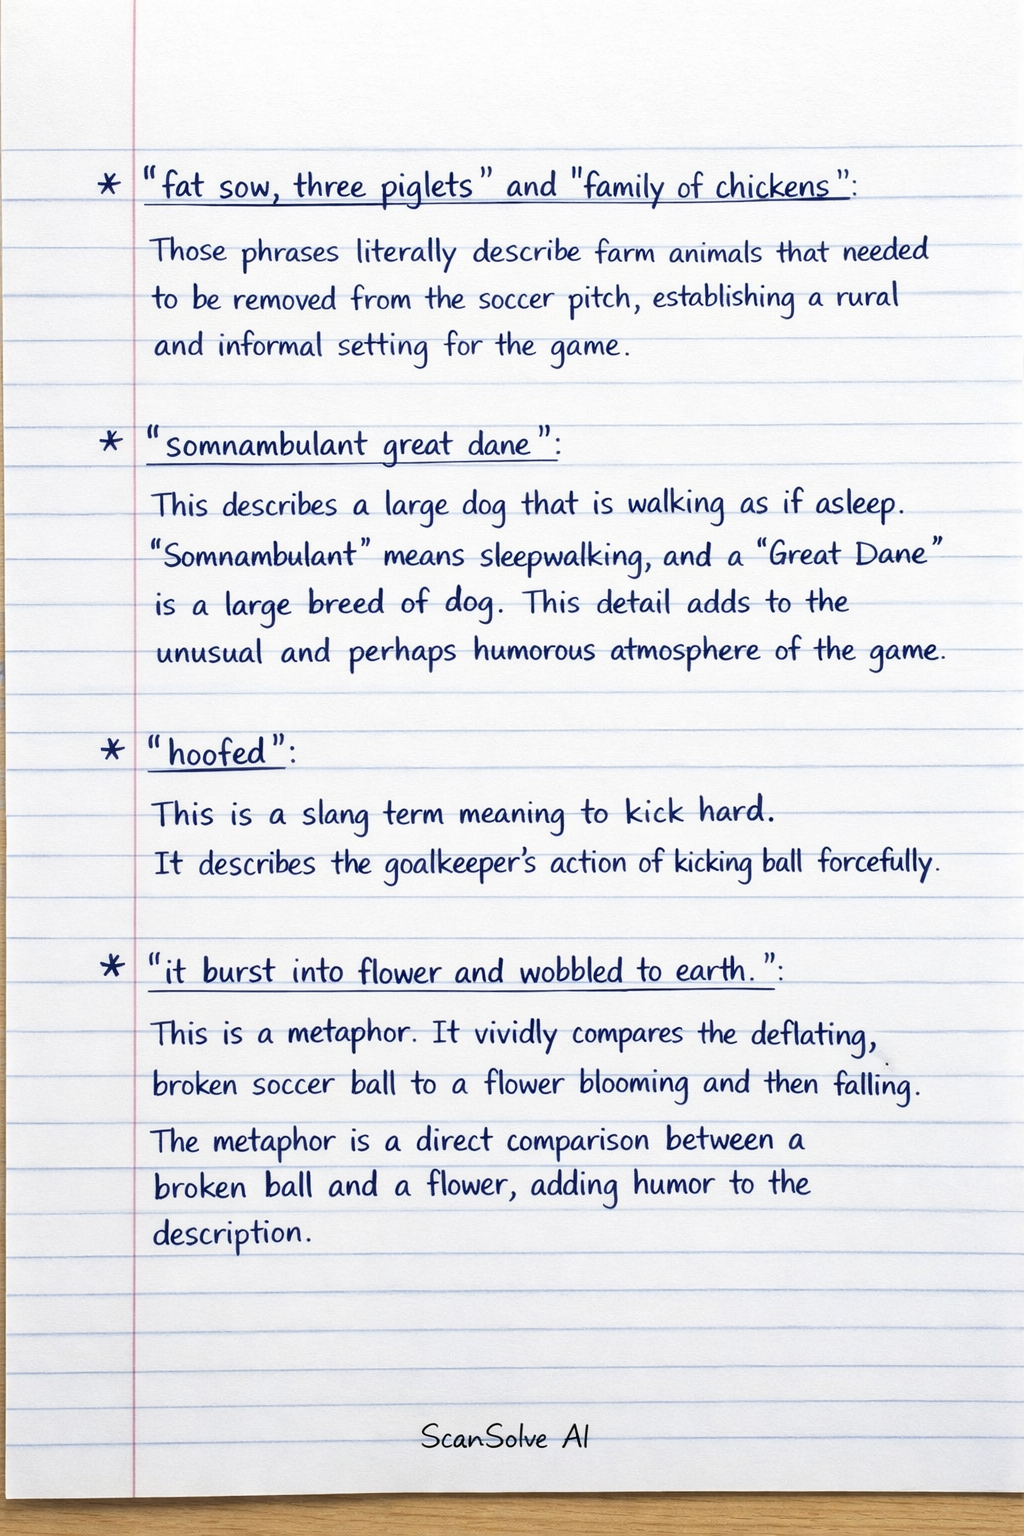 * "fat sow, three piglets" and "family of chickens":
Those phrases literally describe farm animals that needed
to be removed from the soccer pitch, establishing a rural
and informal setting for the game.
* "somnambulant great dane":
This describes a large dog that is walking as if asleep.
"Somnambulant" means sleepwalking, and a "Great Dane"
is a large breed of dog. This detail adds to the
unusual and perhaps humorous atmosphere of the game.
* "hoofed":
This is a slang term meaning to kick hard.
It describes the goalkeeper's action of kicking ball forcefully.
* "it burst into flower and wobbled to earth.":
This is a metaphor. It vividly compares the deflating,
broken soccer ball to a flower blooming and then falling.
The metaphor is a direct comparison between a
broken ball and a flower, adding humor to the
description.
ScanSolve AI